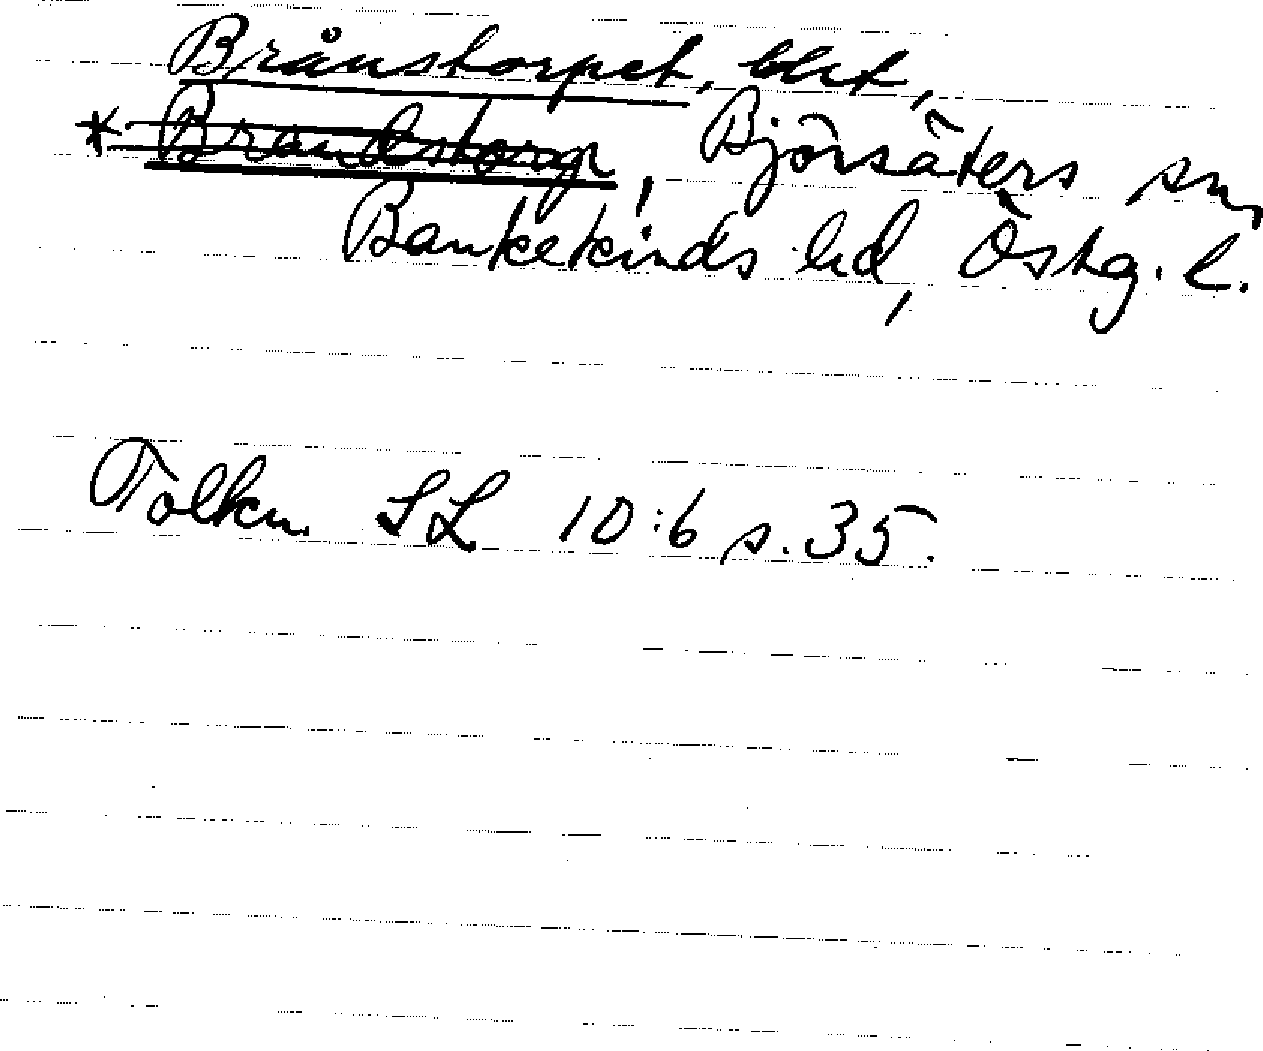 Brånstorpet, blxt,
* Brandstorp, Björsäters sn,
Bankekinds hd, Östg. l.
Tolkn. SL 10:6 s. 35.